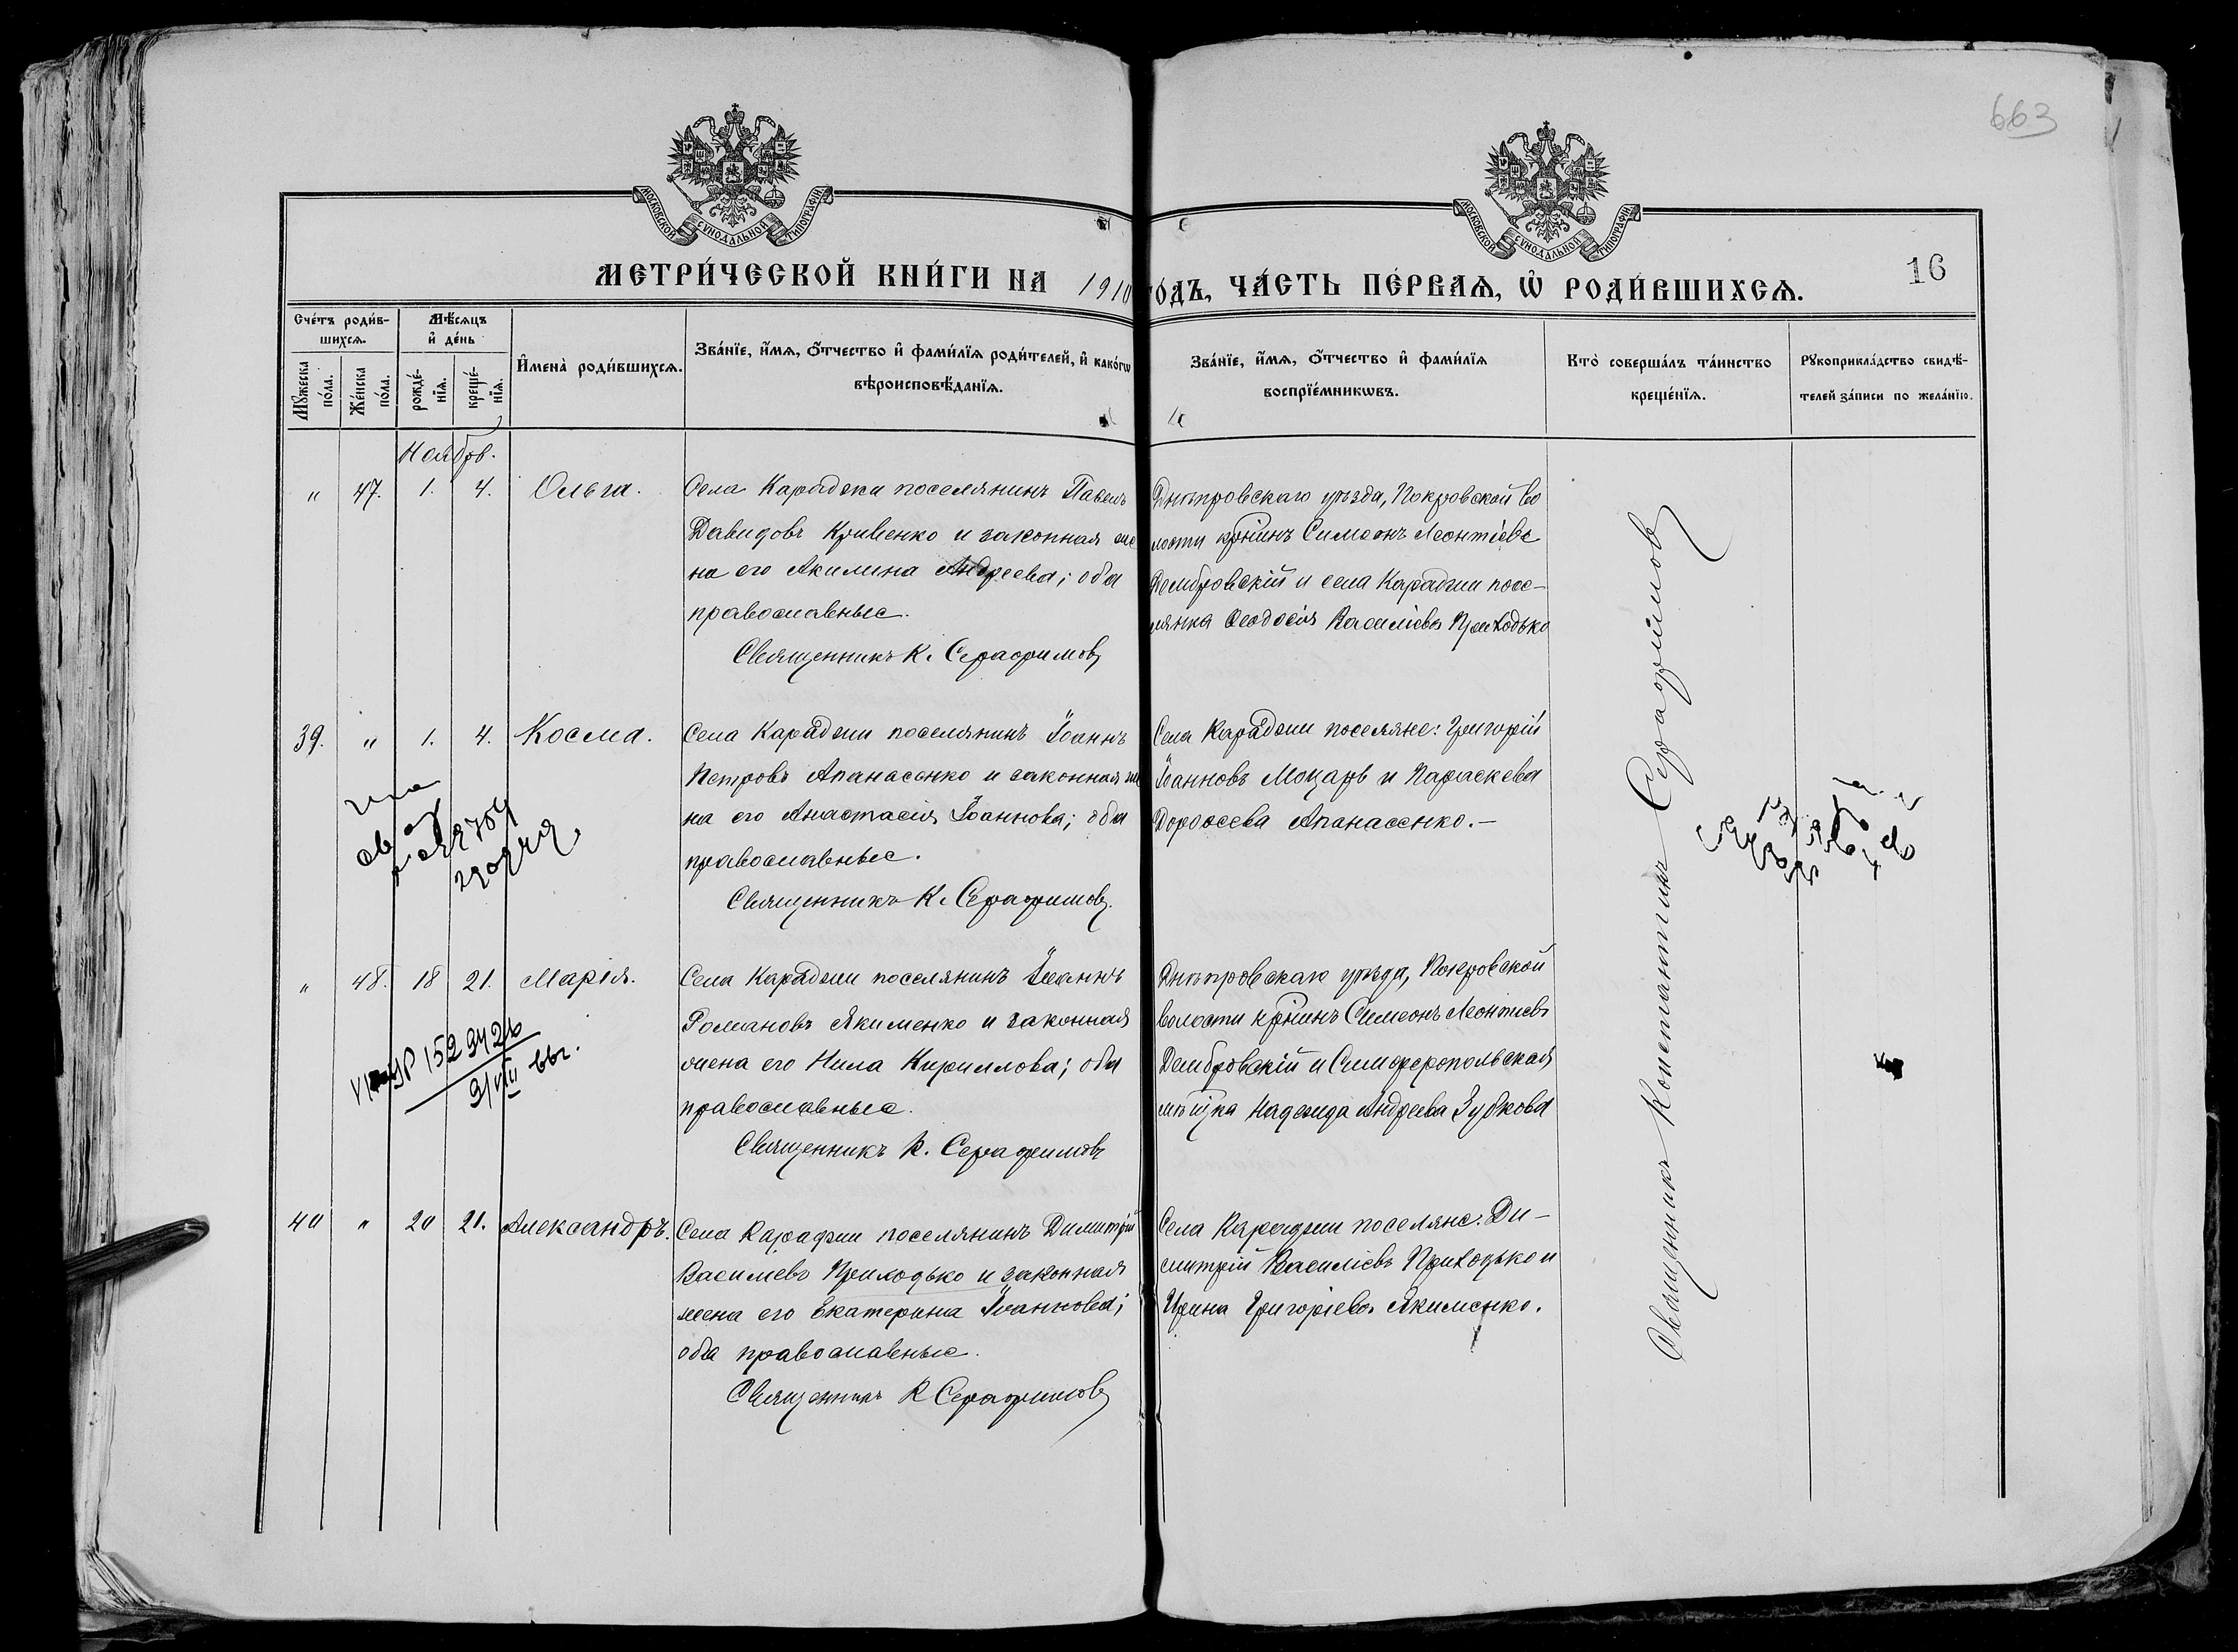 663
МОСКОВСКОЙ СѴНОДАЛЬНОЙ ТИПОГРАФІИ
МОСКОВСКОЙ СѴНОДАЛЬНОЙ ТИПОГРАФІИ
МЕТРИ́ЧЕСКОЙ КНИ́ГИ НА 1910
ГО́ДЪ, ЧА́СТЬ ПЕ́РВАѦ, Ѽ РОДИ́ВШИХСѦ.
16
Сче́тъ роди́в-
шихсѧ.
Мѣ́сѧцъ
и҆ де́нь
Мꙋ́жеска
по́ла.
Же́нска
по́ла.
рожде́-
нїѧ.
креще́-
нїѧ.
И҆мена̀ роди́вшихсѧ.
Зва́нїе, и҆́мѧ, ѻ҆́тчество и҆ фами́лїѧ роди́телей, и҆ како́гѡ
вѣроисповѣ́данїѧ.
Зва́нїе, и҆́мѧ, ѻ҆́тчество и҆ фами́лїѧ
воспрїе́мникѡвъ.
Кто̀ соверша́лъ та́инство
креще́нїѧ.
Рꙋкоприкла́дство свидѣ́-
телей за́писи по жела́нїю.
Ноябрь.
" 47. 1. 4. Ольга.
Села Караджи поселянинъ Павелъ
Давидовъ Кривенко и законная же
на его Акилина Андреева; оба
православные.
Священникъ К. Серафимовъ
Днѣпровскаго уѣзда, Покровской во
лости кр̃нинъ Симеонъ Леонтіевъ
Домбровскій и села Караджи посе-
лянка Ѳеодосія Василіева Приходько
39. " 1. 4. Косма.
Села Караджи поселянинъ Іоаннъ
Петровъ Апанасенко и законная же
на его Анастасія Іоаннова; оба
православные.
Священникъ К. Серафимовъ.
Села Караджи поселяне: Григорій
Іоанновъ Моцарь и Параскева
Дороѳеева Апанасенко.-
" 48. 18 21. Марія.
Села Караджи поселянинъ Іоаннъ
Романовъ Якименко и законная
жена его Нила Кириллова; оба
православные.
Священникъ К. Серафимовъ
Днѣпровскаго уѣзда, Покровской
волости кр̃нинъ Симеонъ Леонтіевъ
Домбровскій и Симферопольская
мѣщ̃ка Надежда Андреева Зубкова
152942
9/VIII
40 " 20 21. Александръ.
Села Караджи поселянинъ Димитрій
Василіевъ Приходько и законная
жена его Екатерина Іоаннова;
оба православные.
Священникъ К Серафимовъ
Села Караджи поселяне: Ди-
митрій Василіевъ Приходько и
Ирина Григоріева Якименко.
Священникъ Константинъ Серафимовъ